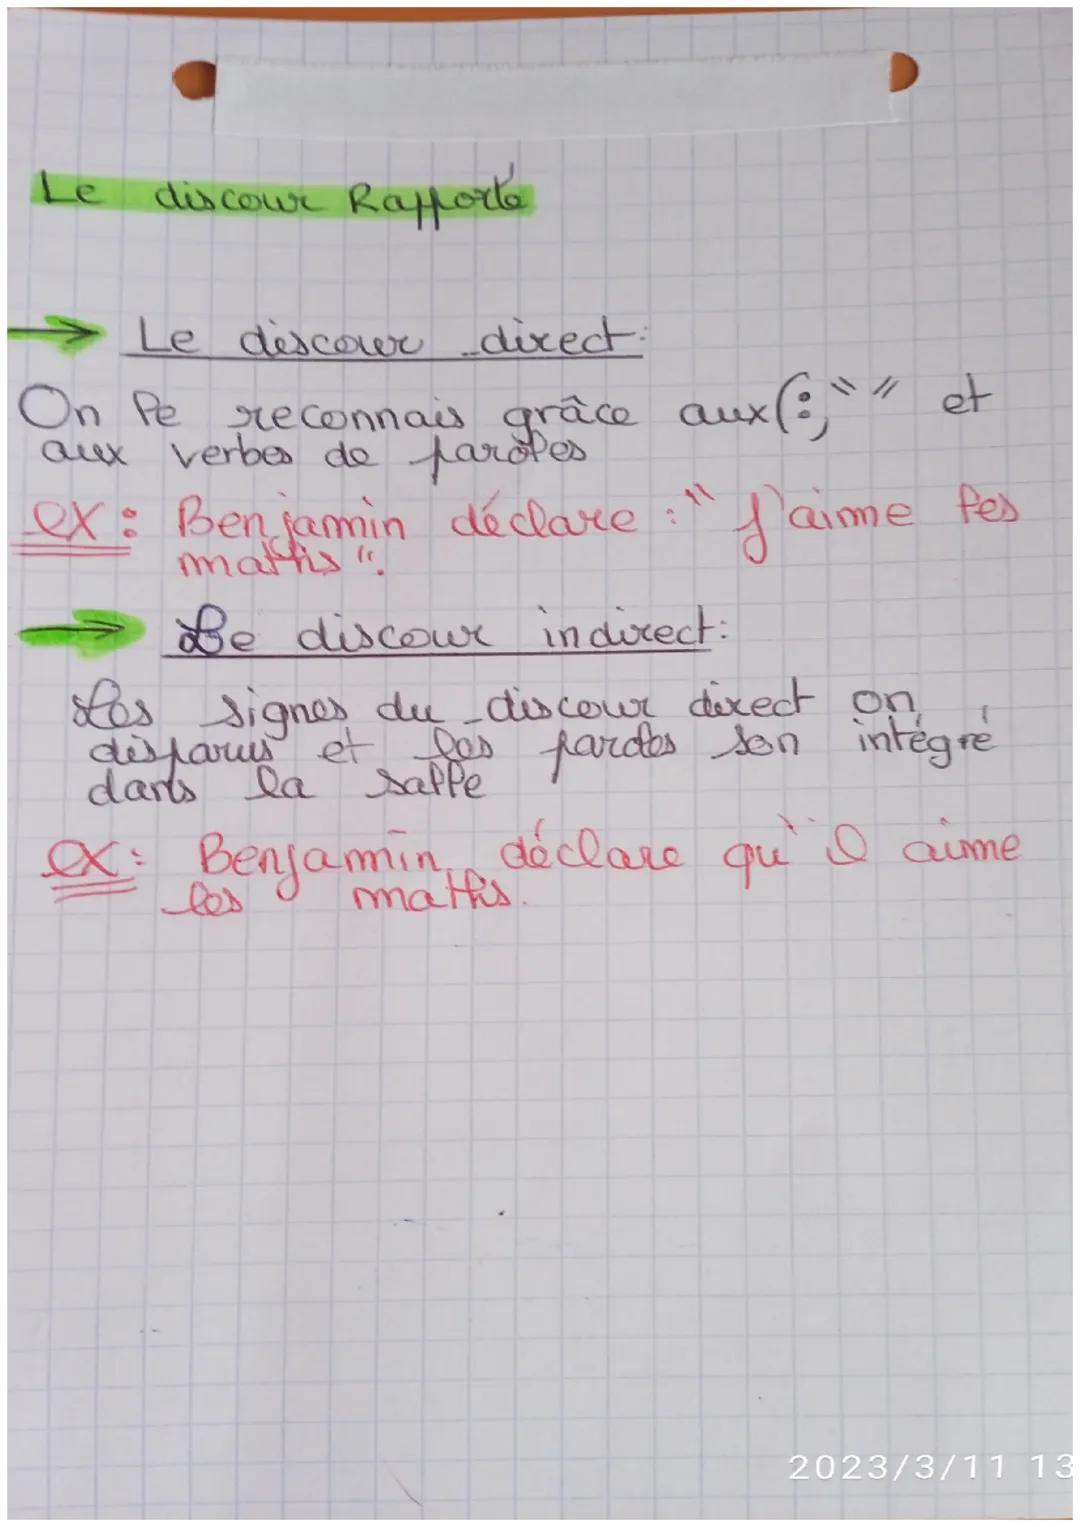 Le discour Rapporté
Le discour direct:
On le reconnais grâce aux (:, " " et
aux verbes de paroles
ex: Benjamin déclare : "J'aime les
maths".
Le discour indirect:
Les signes du discour direct on
disparus et les paroles son intégré
dans la
ex: Benjamin déclare qu'il aime
les maths.
2023/3/11 13